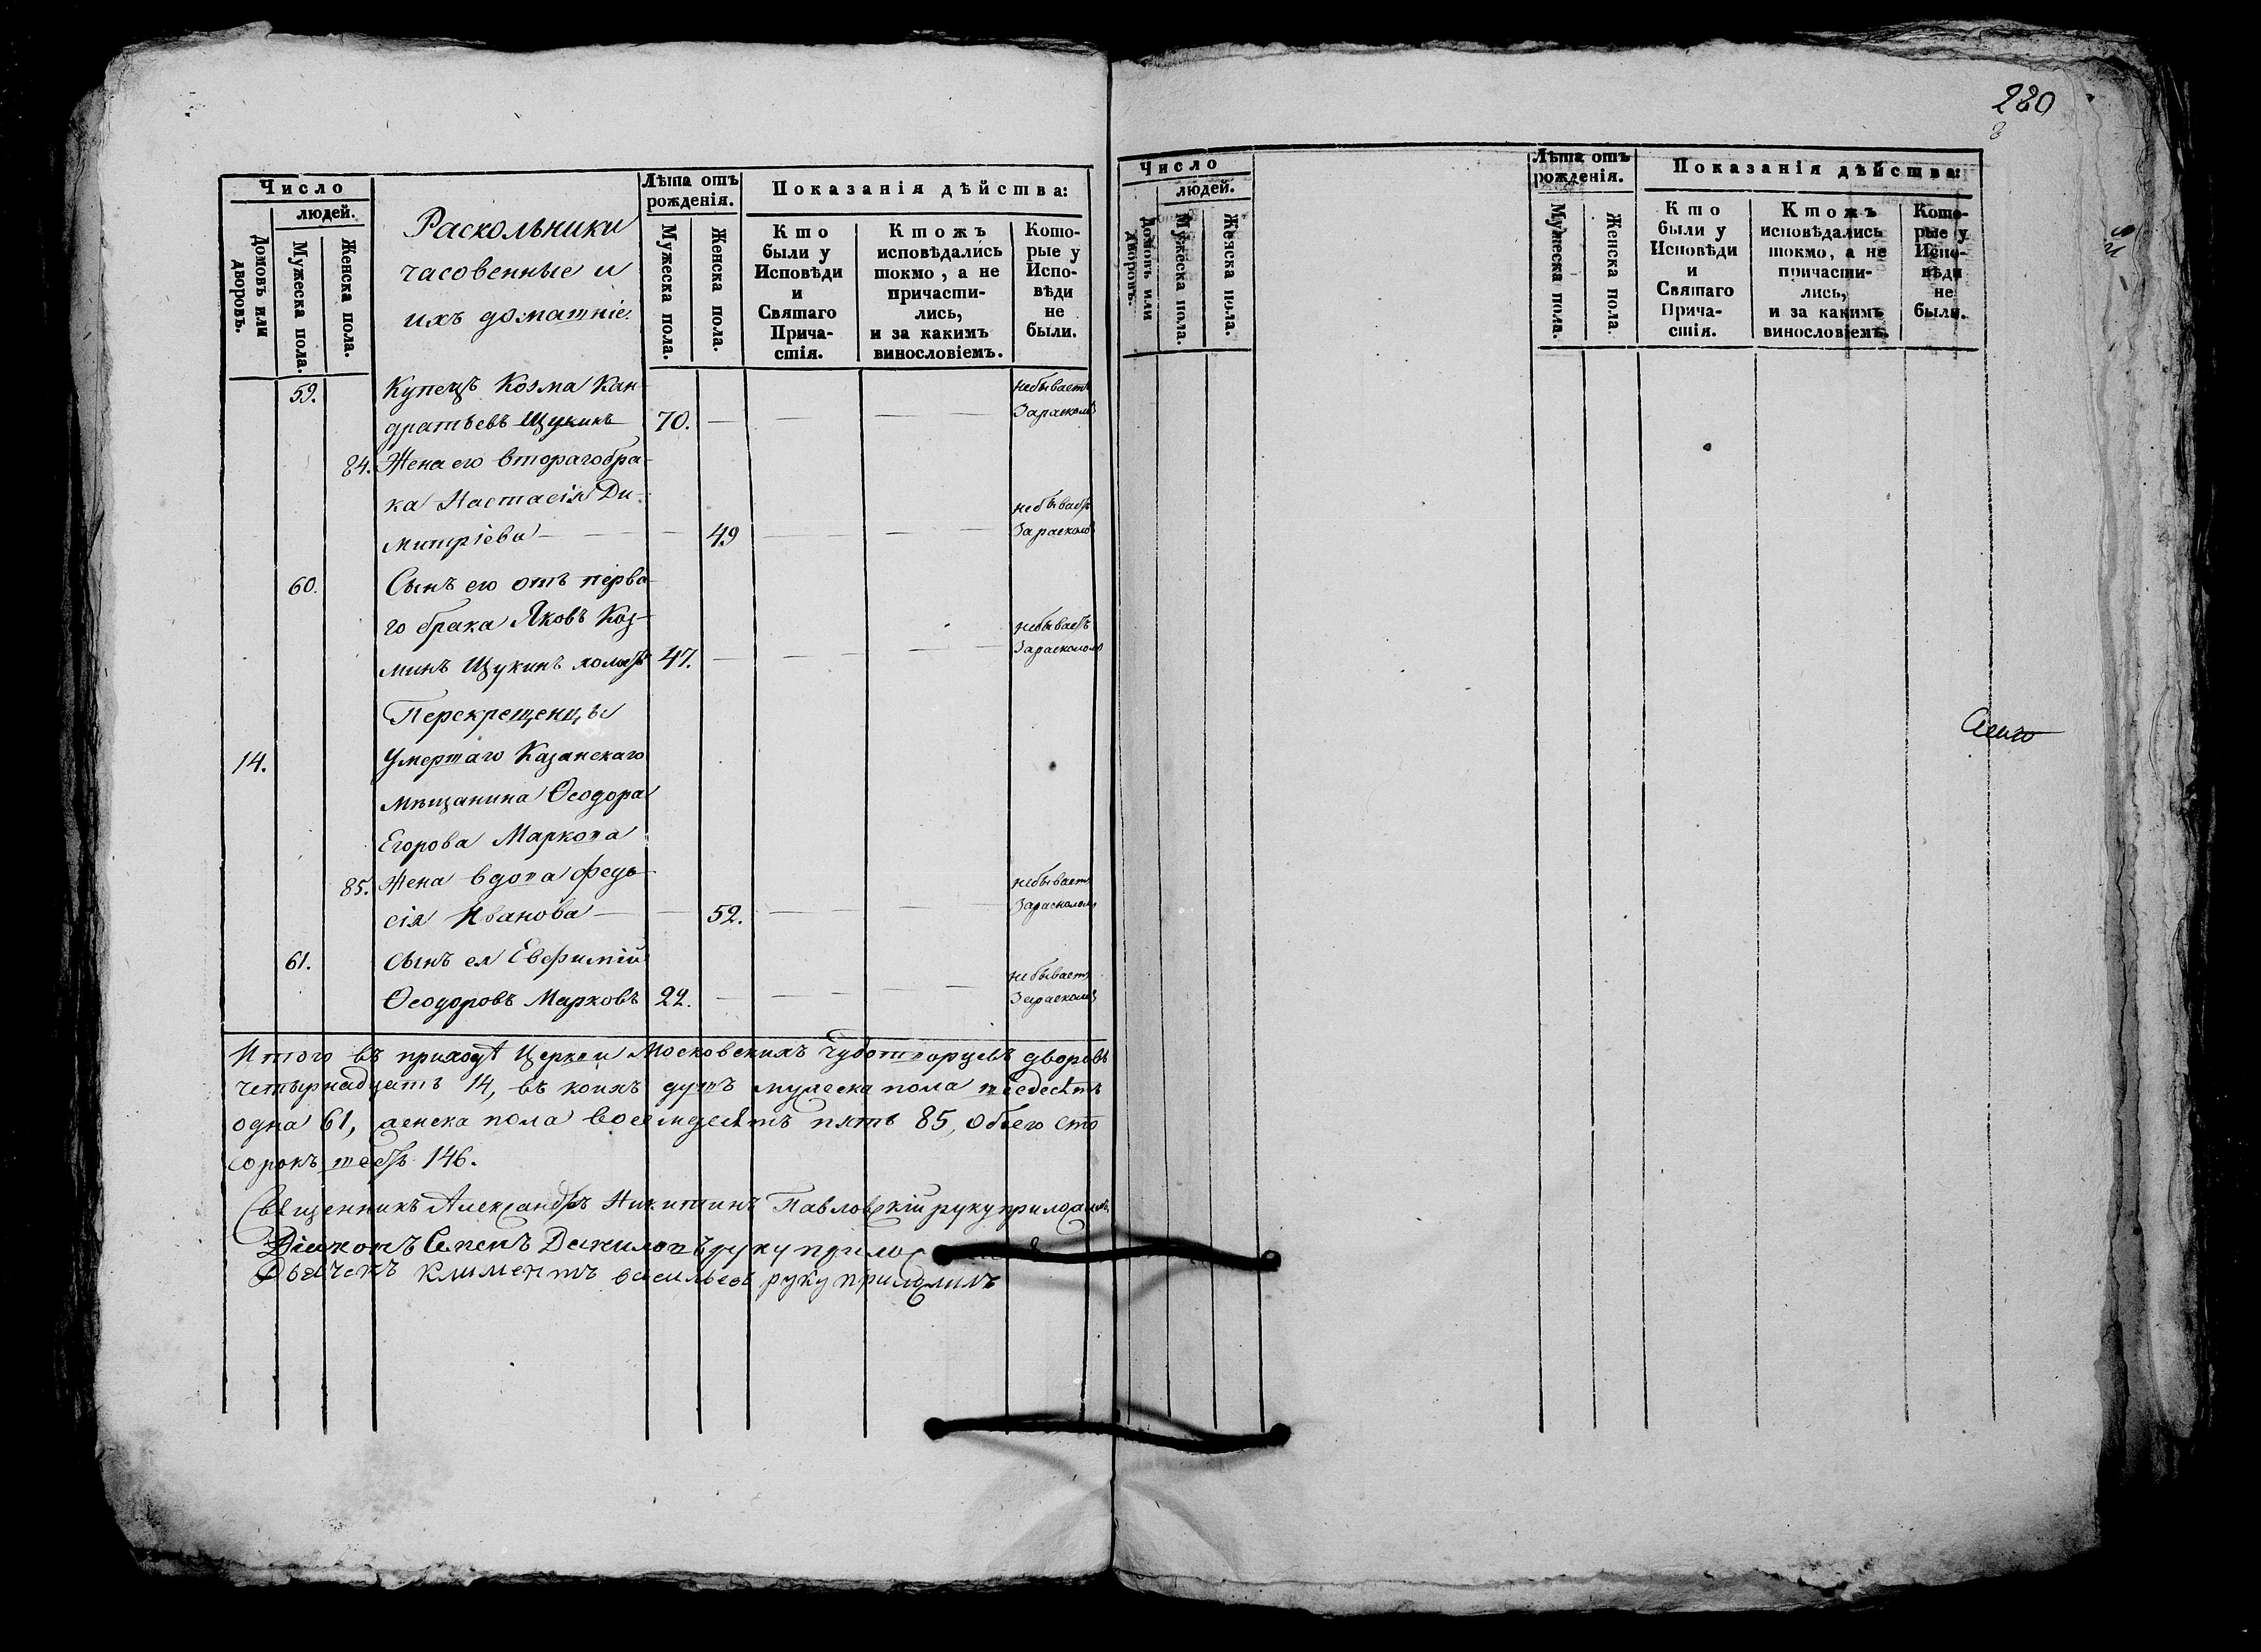 Число
людей.
Домовъ или дворовъ.
Мужеска пола.
Женска пола.
Раскольники
часовенные и
ихъ домашніе.
Лѣта отъ
рожденія.
Мужеска пола.
Женска пола.
Показанія дѣйства:
Кто
были у
Исповѣди
и
Святаго
Прича-
стія.
Ктожъ
исповѣдались
токмо, а не
причасти-
лись,
и за какимъ
винословіемъ.
Кото-
рые у
Испо-
вѣди
не
были.
59. Купецъ Козма Кан- небываетъ
дратьевъ Щукинъ 70. Зарасколо
84. Жена его втораго бра-
ка Настасія Ди- небываетъ
митріева 49 Зарасколо
60. Сынъ его отъ перва-
го брака Яковъ Коз- небываетъ
минъ Щукинъ холостъ 47. Зарасколом
Перекрещенцы
14. Умершаго Казанскаго
мѣщанина Ѳеодора
Егорова Маркова
85. Жена вдова Федо-
сія Иванова 52. небываетъ Зарасколом
61. сынъ ея Евфимій небываетъ
Ѳеодоровъ Марковъ 22. Зарасколо
Итого въ приходѣ Церкви Московскихъ Чудотворцевъ дворовъ
четырнадцать 14, въ коихъ душъ мужеска пола шесдесятъ
одна 61, женска пола восемдесятъ пять 85, обоего сто
сорокъ шесть 146.
Священникъ Александръ Никитинъ Павловскій руку приложилъ
Діаконъ Семенъ Даниловъ руку прило
Дьячекъ климентъ васильевъ руку приложилъ
220
Число
людей.
Домовъ или дворовъ.
Мужеска пола.
Женска пола.
Лѣта отъ
рожденія.
Мужеска пола.
Женска пола.
Показанія дѣйства:
Кто
были у
Исповѣди
и
Святаго
Прича-
стія.
Ктожъ
исповѣдались
токмо, а не
причасти-
лись,
и за какимъ
винословіемъ.
Кото-
рые у
Испо-
вѣди
не
были.